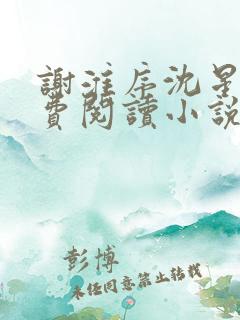 謝淮序沈星
費閱讀小說
彭博
未任同意禁止转载